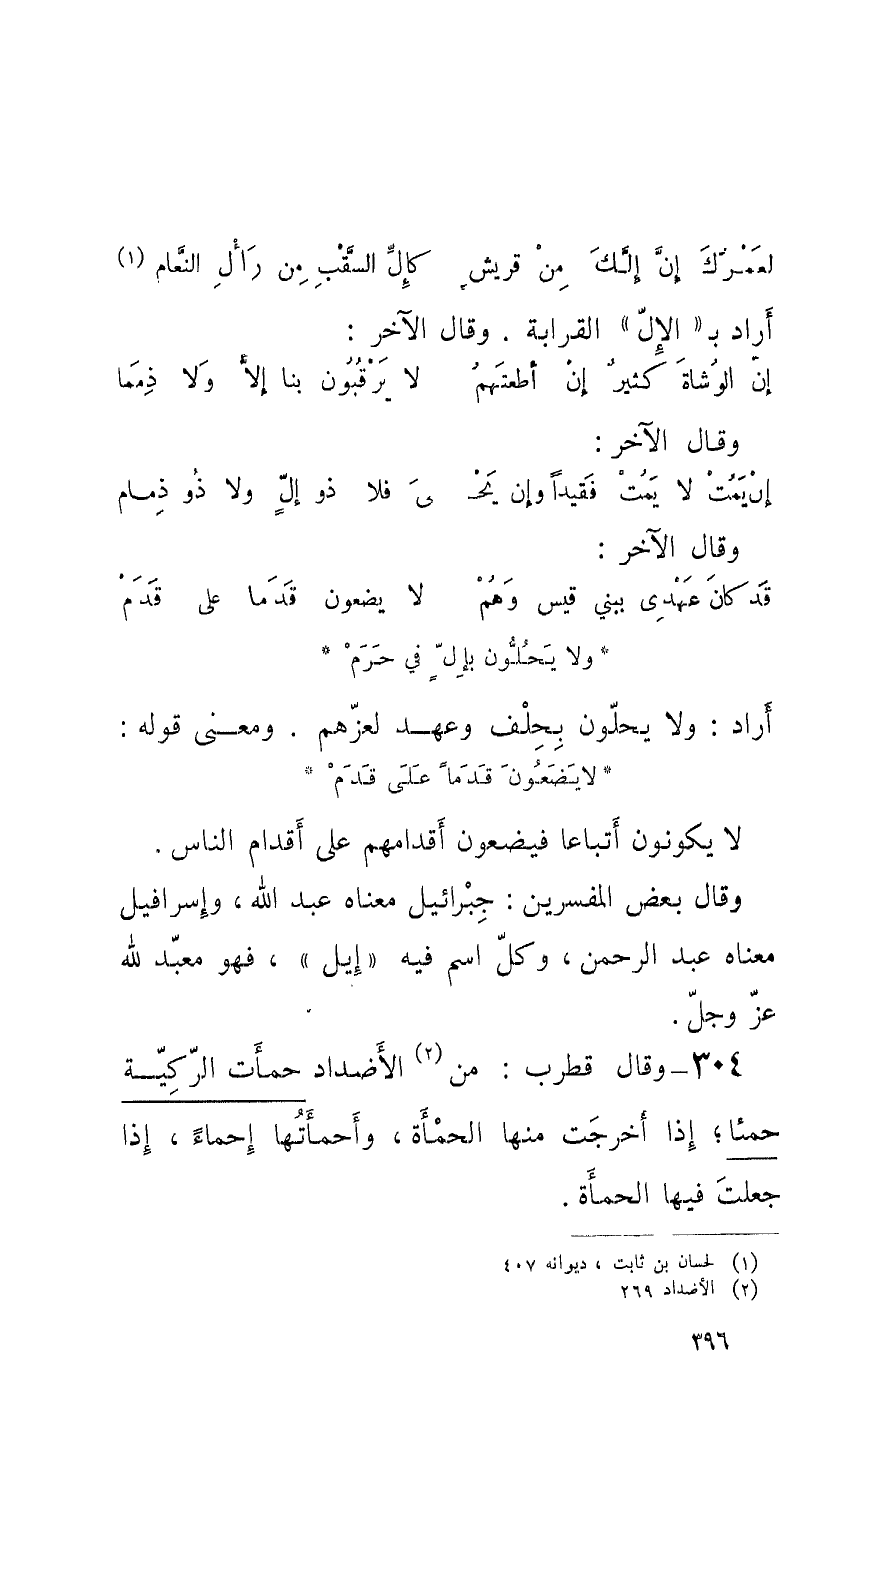 لعَمْرُكَ إِنَّ إِلَّكَ مِنْ قريشٍ كإِلِّ السَّقْبِ مِن رَأْلِ النَّعام (١)
أَراد بـ « الإِلّ » القرابة . وقال الآخر :
إنّ الوُشاةَ كثيرٌ إنْ أطعتَهمُ لا يَرْقُبُون بنا إلاًّ وَلا ذِمَمَا
وقال الآخر :
إن يَمُتْ لا يَمُتْ فَقيداً وإن يَحْـيَ فلا ذو إلٍّ ولا ذُو ذِمام
وقال الآخر :
قَد كانَ عَهْدِى ببني قيس وَهُمْ لا يضعون قَدَمَا على قَدَمْ
* ولا يَحُلُّون بإلٍّ في حَرَمْ *
أَراد : ولا يحلّون بِحِلْف وعهد لعزّهم . ومعنى قوله :
* لا يَضَعُونَ قَدَمَاً عَلَى قَدَمْ *
لا يكونون أَتباعا فيضعون أَقدامهم على أَقدام الناس .
وقال بعض المفسرين : جِبْرائيل معناه عبد الله ، وإسرافيل
معناه عبد الرحمن ، وكلّ اسم فيه « إيل » ، فهو معبّد لله
عزّ وجلّ .
٣٠٤ـ وقال قطرب : من (٢) الأَضداد حمأَت الرّكِيّة
حمئا ؛ إذا أخرجَت منها الحمْأَة ، وأَحمأَتُها إحماءً ، إذا
جعلتَ فيها الحمأَة .
(١) لحسان بن ثابت ، ديوانه ٤٠٧
(٢) الأضداد ٢٦٩
٣٩٦